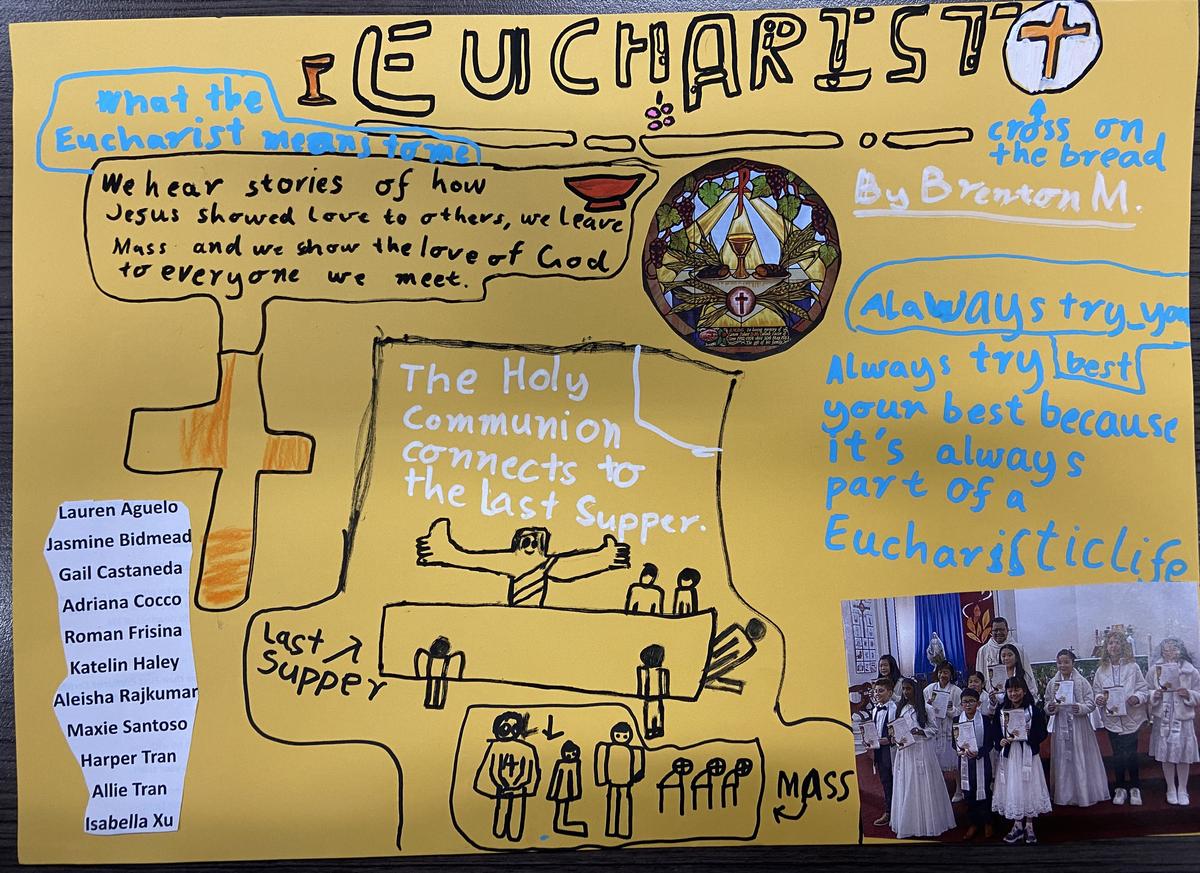 EUCHARIST
cross on
the bread
By Brenton M.
What the
Eucharist means to me
We hear stories of how
Jesus showed love to others, we leave
Mass and we show the love of God
to everyone we meet.
Alaways try you
best
Always try
your best because
it's always
part of a
Eucharisticlife
The Holy
Communion
connects to
the Last Supper.
Last
Supper
Mass
Lauren Aguelo
Jasmine Bidmead
Gail Castaneda
Adriana Cocco
Roman Frisina
Katelin Haley
Aleisha Rajkumar
Maxie Santoso
Harper Tran
Allie Tran
Isabella Xu